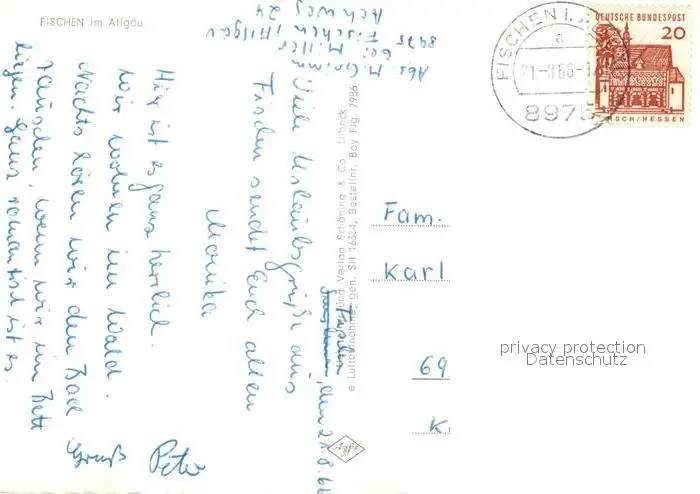 FISCHEN im Allgäu
Abs. M. Grimm
bei Miller
8975 Fischen, Allgäu
Achweg 24
Fischen, den 21.8.66
Viele Urlaubsgrüße aus
Fischen sendet Euch allen
Monika
Hier ist es ganz herrlich.
Wir wohnen im Wald.
Nachts hören wir den Bach
rauschen, wenn wir im Bett
liegen. Ganz romantisch ist es.
Gruß Peter
© Luftaufnahmen und Verlag Schöning & Co. Lübeck
gen. SH 16364, Bestellnr. Boy Fig. 7986
FISCHEN i. A
a
21.-8.66.-1
8975
DEUTSCHE BUNDESPOST
20
LORSCH/HESSEN
Fam.
Karl
69
K
privacy protection
Datenschutz